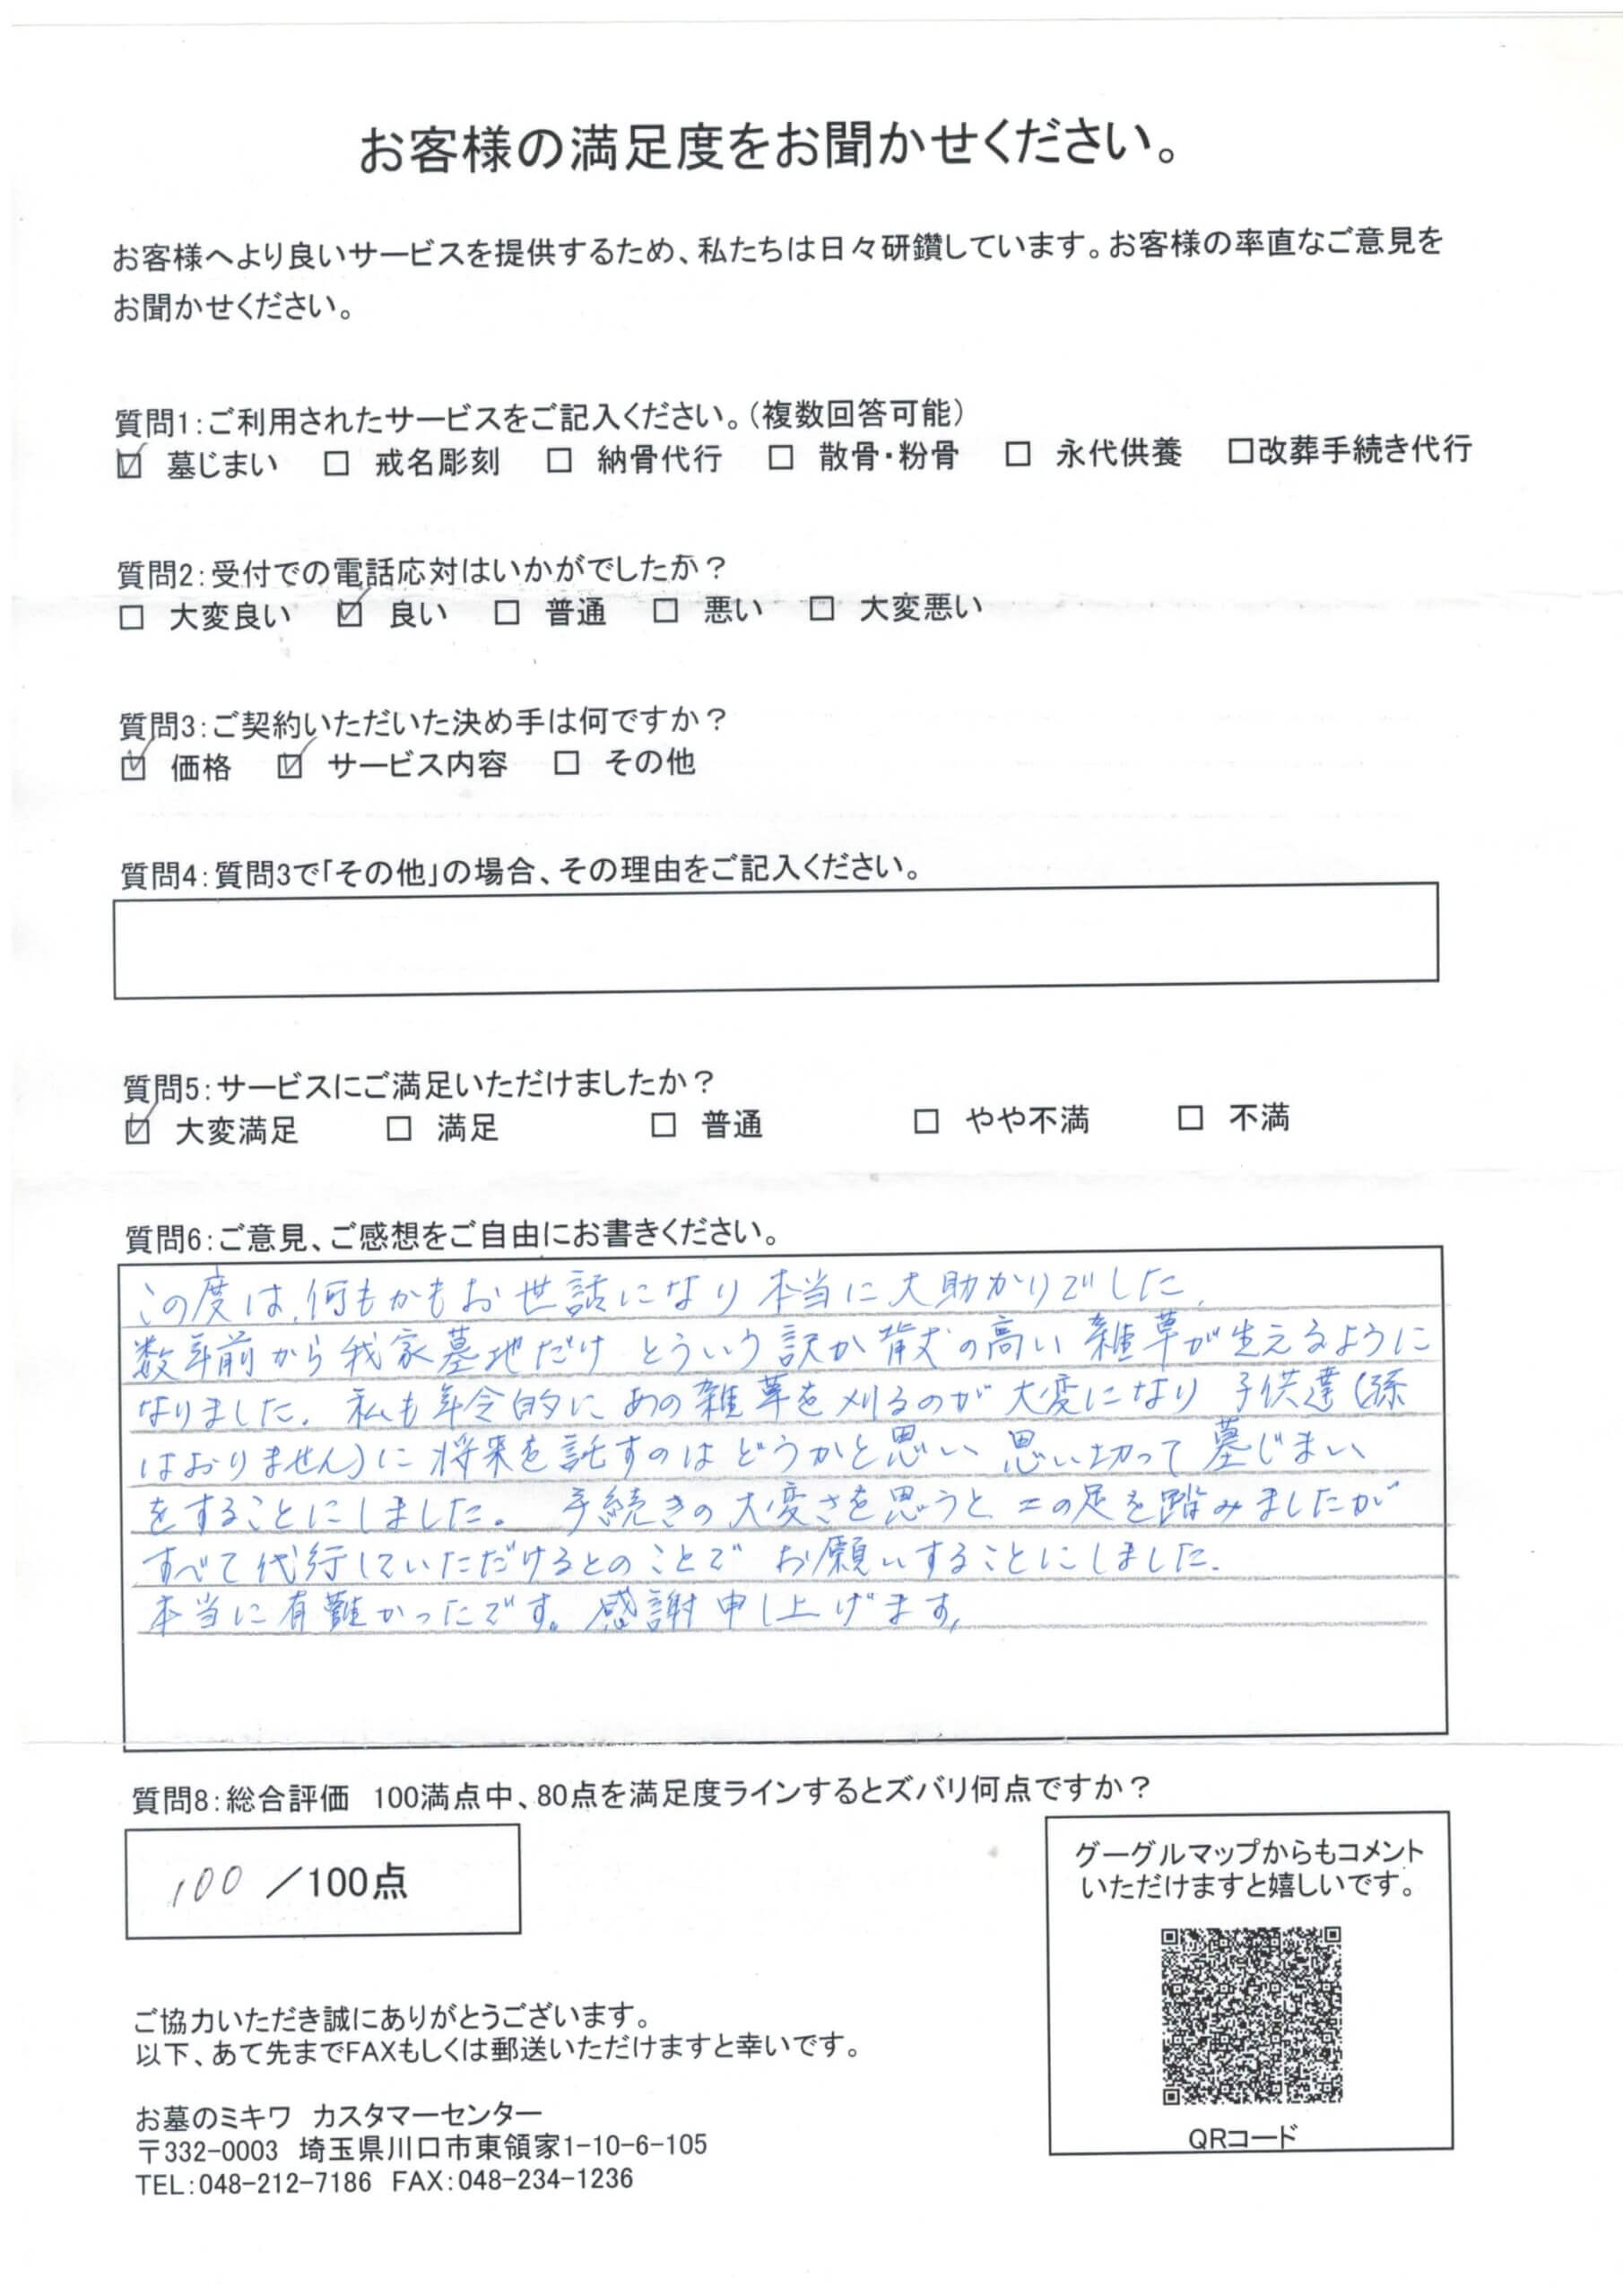 お客様の満足度をお聞かせください。
お客様へより良いサービスを提供するため、私たちは日々研鑽しています。お客様の率直なご意見を
お聞かせください。
質問1:ご利用されたサービスをご記入ください。(複数回答可能)
☑ 墓じまい □ 戒名彫刻 □ 納骨代行 □ 散骨・粉骨 □ 永代供養 □改葬手続き代行
質問2:受付での電話応対はいかがでしたか?
□ 大変良い ☑ 良い □ 普通 □ 悪い □ 大変悪い
質問3:ご契約いただいた決め手は何ですか?
☑ 価格 ☑ サービス内容 □ その他
質問4:質問3で「その他」の場合、その理由をご記入ください。
質問5:サービスにご満足いただけましたか?
☑ 大変満足 □ 満足 □ 普通 □ やや不満 □ 不満
質問6:ご意見、ご感想をご自由にお書きください。
この度は、何もかもお世話になり本当に大助かりでした。
数年前から我家墓地だけ とういう訳か背丈の高い雑草が生えるように
なりました。私も年令的に、あの雑草を刈るのが大変になり 子供達(孫
はおりません)に将来を託すのはどうかと思い 思い切って墓じまい
をすることにしました。 手続きの大変さを思うと、二の足を踏みましたが
すべて代行していただけるとのことで お願いすることにしました。
本当に有難かったです。感謝申し上げます。
質問8:総合評価 100満点中、80点を満足度ラインするとズバリ何点ですか?
100 /100点
グーグルマップからもコメント
いただけますと嬉しいです。
QRコード
ご協力いただき誠にありがとうございます。
以下、あて先までFAXもしくは郵送いただけますと幸いです。
お墓のミキワ カスタマーセンター
〒332-0003 埼玉県川口市東領家1-10-6-105
TEL:048-212-7186 FAX:048-234-1236